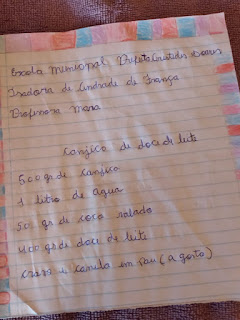 Escola Municipal Prefeito Aristides
Isadora de Andrade de França
Professora Mara
Canjica de doci de leite
500 gr de canjica
1 litro de agua
50 gr de coco ralado
400 gr de doci de leite
cravo e canela em pau (a gosto)